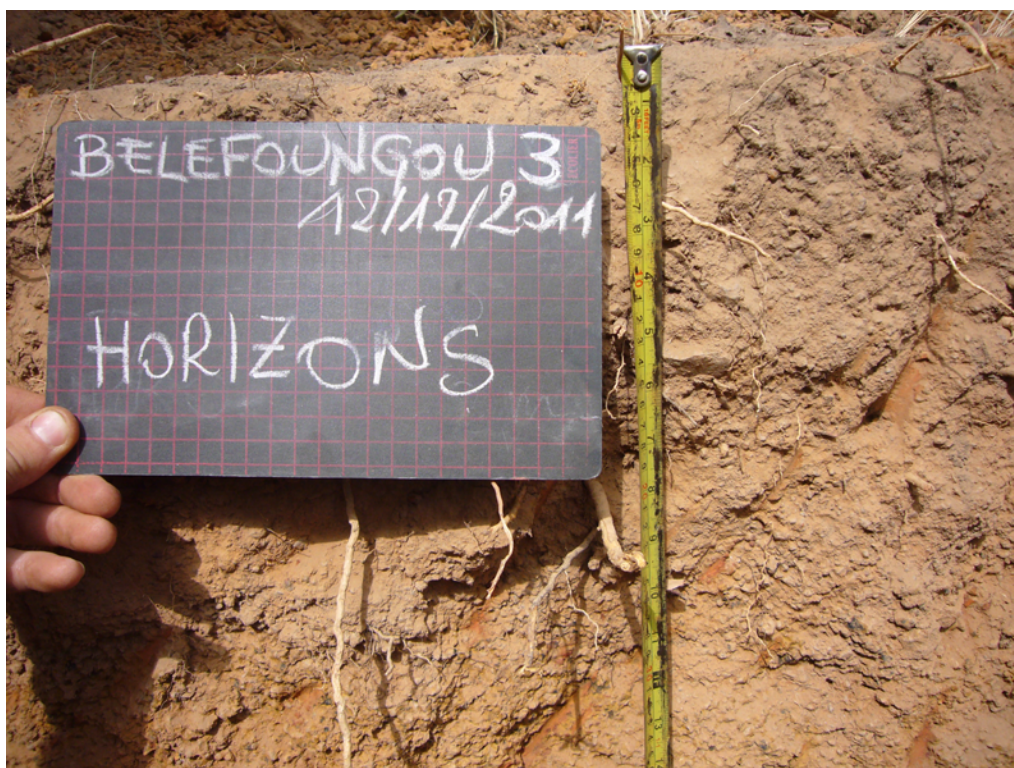 BELEFOUNGOU 3
12/12/2011
HORIZONS